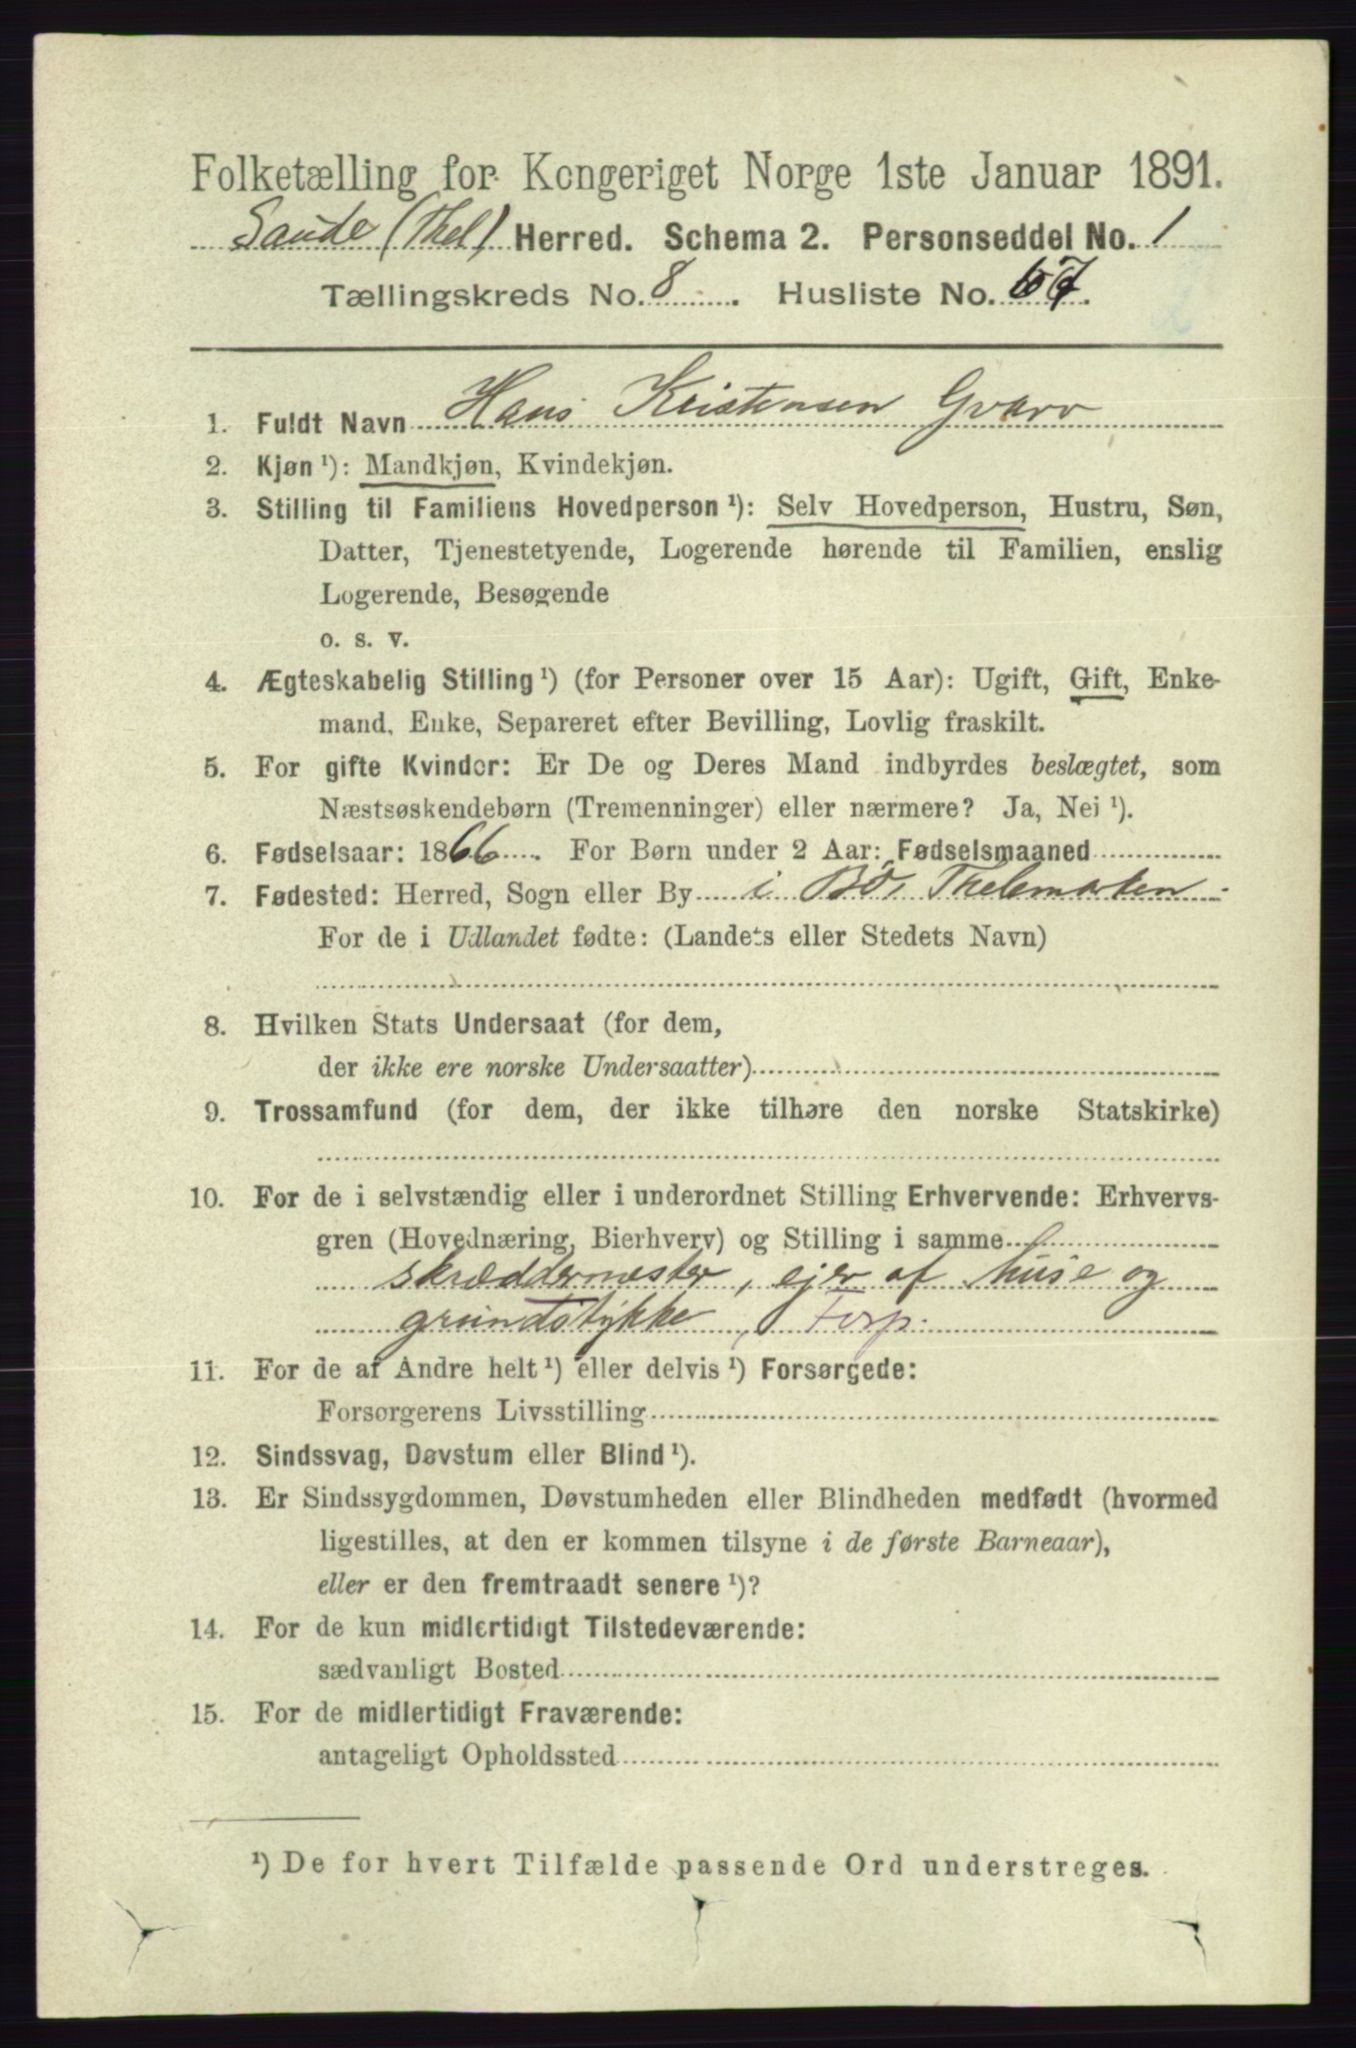 Folketælling for Kongeriget Norge 1ste Januar 1891.
Saude (Thel) Herred. Schema 2. Personseddel No. 1
Tællingskreds No. 8. Husliste No. 67.
1. Fuldt Navn Hans Kristensen Gvarv
2. Kjøn ¹): Mandkjøn, Kvindekjøn.
3. Stilling til Familiens Hovedperson ¹): Selv Hovedperson, Hustru, Søn,
Datter, Tjenestetyende, Logerende hørende til Familien, enslig
Logerende, Besøgende
o. s. v.
4. Ægteskabelig Stilling ¹) (for Personer over 15 Aar): Ugift, Gift, Enke-
mand, Enke, Separeret efter Bevilling, Lovlig fraskilt.
5. For gifte Kvinder: Er De og Deres Mand indbyrdes beslægtet, som
Næstsøskendebørn (Tremenninger) eller nærmere? Ja, Nei ¹).
6. Fødselsaar: 1866. For Børn under 2 Aar: Fødselsmaaned
7. Fødested: Herred, Sogn eller By i Bø, Thelemarken
For de i Udlandet fødte: (Landets eller Stedets Navn)
8. Hvilken Stats Undersaat (for dem,
der ikke ere norske Undersaatter)
9. Trossamfund (for dem, der ikke tilhøre den norske Statskirke)
10. For de i selvstændig eller i underordnet Stilling Erhvervende: Erhvervs-
gren (Hovednæring, Bierhverv) og Stilling i samme
skræddermester, ejer af huse og
grundstykke, Forp.
11. For de af Andre helt ¹) eller delvis ¹) Forsørgede:
Forsørgerens Livsstilling
12. Sindssvag, Døvstum eller Blind ¹).
13. Er Sindssygdommen, Døvstumheden eller Blindheden medfødt (hvormed
ligestilles, at den er kommen tilsyne i de første Barneaar),
eller er den fremtraadt senere ¹)?
14. For de kun midlertidigt Tilstedeværende:
sædvanligt Bosted
15. For de midlertidigt Fraværende:
antageligt Opholdssted
¹) De for hvert Tilfælde passende Ord understreges.